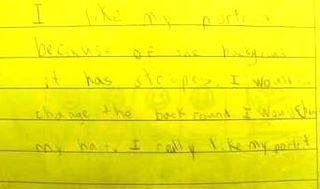 I like my portrit
because of the backgroun
it has stripes. I would
change the back round. I would
my hair. I really like my portrit